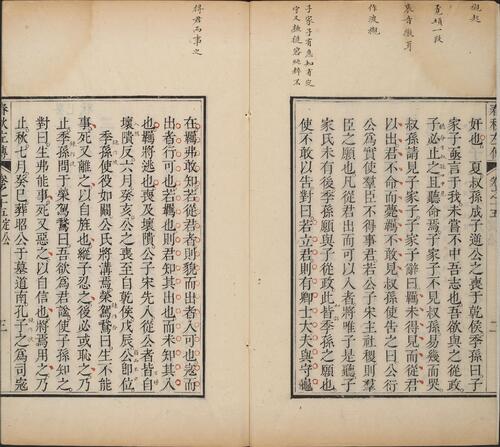 哀音激耳
作波瀾
守又極從容純粹不
得君而事之
奸也　夏叔孫成子逆公之喪于乾侯季孫曰子
家子亟言于我未嘗不中吾志也吾欲與之從政
子必止之且聽命焉子家子不見叔孫易幾而哭
叔孫請見子家子子家子辭曰羈未得見而從君
以出君不命而薨羈不敢見叔孫使告之曰公衍
公爲實使羣臣不得事君若公子宋主社稷則羣
臣之願也凡從君出而可以入者將唯子是聽子
家氏未有後季孫願與子從政此皆季孫之願也
使不敢以告對曰若立君則有卿士大夫與守龜
在羈弗敢知若從君者則貌而出者入可也寇而
出者行可也若羈也則君知其出也而未知其入
也羈將逃也喪及壞隤公子宋先入從公者皆自
壞隤反六月癸亥公之喪至自乾侯戊辰公卽位
季孫使役如闞公氏將溝焉榮駕鵞曰生不能
事死又離之以自旌也縱子忍之後必或恥之乃
止季孫問于榮駕鵞曰吾欲爲君謚使子孫知之
對曰生弗能事死又惡之以自信也將焉用之乃
止秋七月癸巳葬昭公于墓道南孔子之爲司寇
春秋左傳
卷之十五定公
三